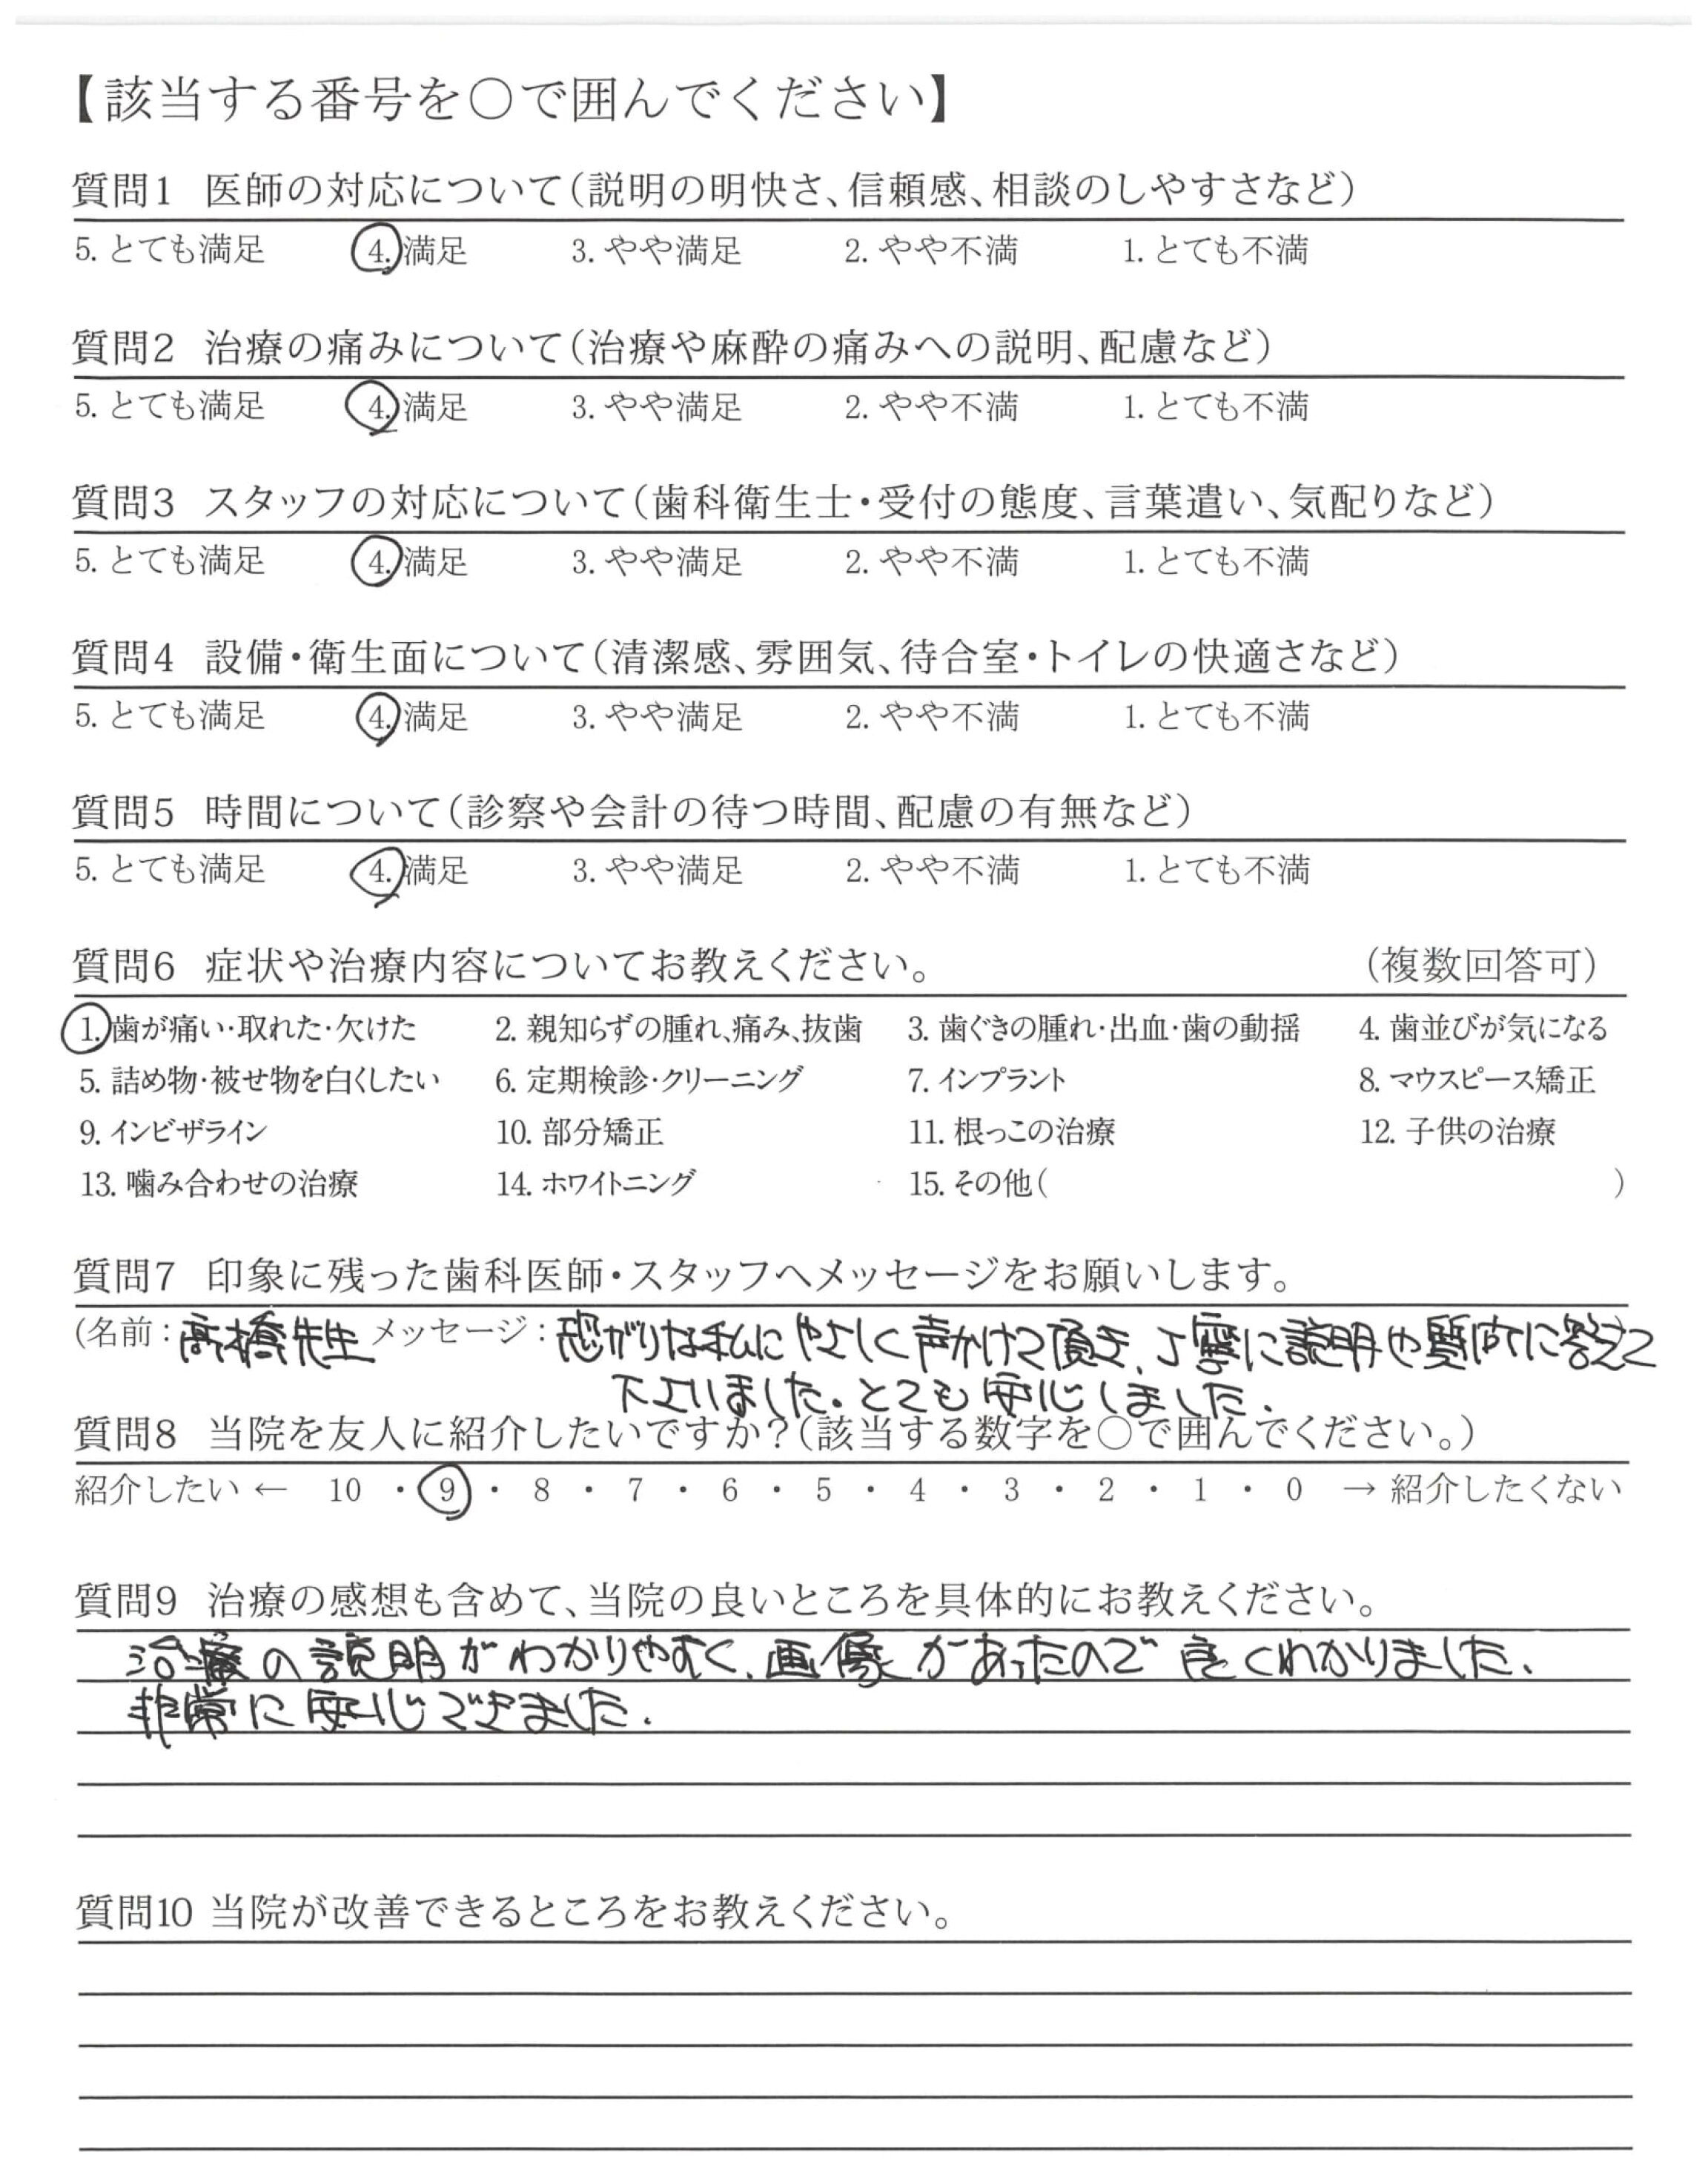 【該当する番号を○で囲んでください】
質問1 医師の対応について(説明の明快さ、信頼感、相談のしやすさなど)
5. とても満足 4. 満足 3. やや満足 2. やや不満 1. とても不満
質問2 治療の痛みについて(治療や麻酔の痛みへの説明、配慮など)
5. とても満足 4. 満足 3. やや満足 2. やや不満 1. とても不満
質問3 スタッフの対応について(歯科衛生士・受付の態度、言葉遣い、気配りなど)
5. とても満足 4. 満足 3. やや満足 2. やや不満 1. とても不満
質問4 設備・衛生面について(清潔感、雰囲気、待合室・トイレの快適さなど)
5. とても満足 4. 満足 3. やや満足 2. やや不満 1. とても不満
質問5 時間について(診察や会計の待つ時間、配慮の有無など)
5. とても満足 4. 満足 3. やや満足 2. やや不満 1. とても不満
質問6 症状や治療内容についてお教えください。 (複数回答可)
1. 歯が痛い・取れた・欠けた 2. 親知らずの腫れ、痛み、抜歯 3. 歯ぐきの腫れ・出血・歯の動揺 4. 歯並びが気になる
5. 詰め物・被せ物を白くしたい 6. 定期検診・クリーニング 7. インプラント 8. マウスピース矯正
9. インビザライン 10. 部分矯正 11. 根っこの治療 12. 子供の治療
13. 噛み合わせの治療 14. ホワイトニング 15. その他( )
質問7 印象に残った歯科医師・スタッフへメッセージをお願いします。
(名前:高橋先生 メッセージ:恐がりな私にやさしく声かけて頂き、丁寧に説明や質問に答えて)
下さいました。とても安心しました。
質問8 当院を友人に紹介したいですか?(該当する数字を○で囲んでください。)
紹介したい ← 10 ・ 9 ・ 8 ・ 7 ・ 6 ・ 5 ・ 4 ・ 3 ・ 2 ・ 1 ・ 0 → 紹介したくない
質問9 治療の感想も含めて、当院の良いところを具体的にお教えください。
治療の説明がわかりやすく、画像があったので良くわかりました。
非常に安心できました。
質問10 当院が改善できるところをお教えください。